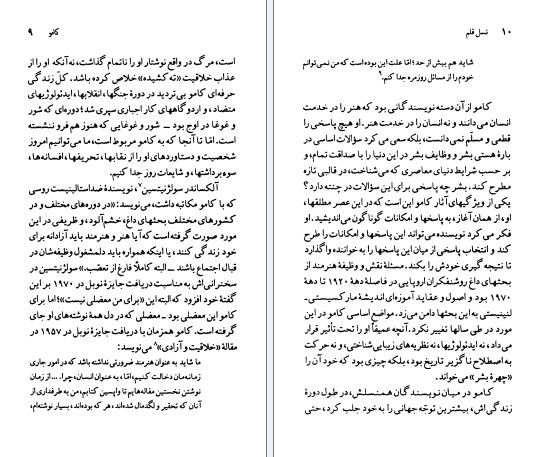 کامو ۹
است، مرگ در واقع نوشتار او را ناتمام گذاشت، نه آنکه او را از
عذاب خلاقیت «ته کشیده» خلاص کرده باشد. کلّ زندگی
حرفه‌ای کامو بی‌تردید در دورهٔ جنگها، انقلابها، ایدئولوژیهای
متضاد، و اردوگاههای کار اجباری سپری شد؛ دوره‌ای که شور
و غوغا در اوج بود ــ شور و غوغایی که هنوز هم فرو ننشسته
است. امّا تا آنجا که به کامو مربوط است، ما می‌توانیم امروز
شخصیت و دستاوردهای او را از نقابها، تحریفها، افسانه‌ها،
سوءبرداشتها، و شایعات روز جدا کنیم.
آلکساندر سولژنیتسین۷، نویسندهٔ ضداستالینیست روسی
که با کامو مکاتبه داشت، می‌نویسد: «در دوره‌های مختلف و در
کشورهای مختلف بحثهای داغ، خشم‌آلود، و ظریفی در این
مورد صورت گرفته است که آیا هنر و هنرمند باید آزادانه برای
خود زندگی کنند، یا اینکه همواره باید دلمشغول وظیفه‌شان در
قبال اجتماع باشند ــ البته کاملاً فارغ از تعصّب.» سولژنیتسین در
سخنرانی‌اش به مناسبت دریافت جایزهٔ نوبل در ۱۹۷۰ بر این
گفتهٔ خود افزود که البته این «برای من معضلی نیست»؛ اما برای
کامو این معضلی بود ـ معضلی که در دل همهٔ نوشته‌های او جای
گرفته است. کامو همزمان با دریافت جایزهٔ نوبل در ۱۹۵۷ در
مقالهٔ «خلاقیت و آزادی»۸ می‌نویسد:
ما شاید به عنوان هنرمند ضرورتی نداشته باشد که در امور جاری
زمانه‌مان دخالت کنیم، امّا، به عنوان انسان، چرا.... از زمان
نوشتن نخستین مقاله‌هایم تا واپسین کتابم، من به طرفداری از
آنان که تحقیر و لگدمال شده‌اند، هر که بوده‌اند، بسیار نوشته‌ام،
۱۰ نسل قلم
شاید هم بیش از حد؛ امّا علت این بوده است که من نمی‌توانم
خودم را از مسائل روزمره جدا کنم.۹
کامو از آن دسته نویسندگانی بود که هنر را در خدمت
انسان می‌دانند و نه انسان را در خدمت هنر. او هیچ پاسخی را
قطعی و مسلّم نمی‌دانست، بلکه سعی می‌کرد سؤالات اساسی در
بارهٔ هستی بشر و وظایف بشر در این دنیا را با صداقت تمام، و
بر حسب شرایط دنیای معاصری که می‌شناخت، در قالبی تازه
مطرح کند. بشر چه پاسخی برای این سؤالات در چنته دارد؟
یکی از ویژگیهای آثار کامو این است که در این عصر مطلقها،
او، از همان آغاز، به پاسخها و امکانات گوناگون می‌اندیشید. او
فکر می کرد نویسنده می‌تواند این پاسخها و امکانات را طرح
کند و انتخاب پاسخی از میان این پاسخها را به خواننده واگذارد
تا نتیجه گیری خودش را بکند. مسئلهٔ نقش و وظیفهٔ هنرمند از
بحثهای داغ روشنفکران اروپایی در فاصلهٔ دههٔ ۱۹۲۰ تا دههٔ
۱۹۷۰ بود و اصول و عقاید آموزه‌ای اندیشهٔ مارکسیستی ـ
لنینیستی به این بحثها دامن می‌زد. مواضع اساسی کامو در این
مورد در طی سالها تغییر نکرد. آنچه عمیقاً او را تحت تأثیر قرار
می‌داد، نه ایدئولوژیها، نه نظریه‌های زیبایی‌شناختی، و نه حرکت
به اصطلاح ناگزیر تاریخ بود، بلکه چیزی بود که خود آن را
«چهرهٔ بشر» می‌خواند.
کامو در میان نویسندگان همنسلش، در طول دورهٔ
زندگی‌اش، بیشترین توجّه جهانی را به خود جلب کرد، حتی